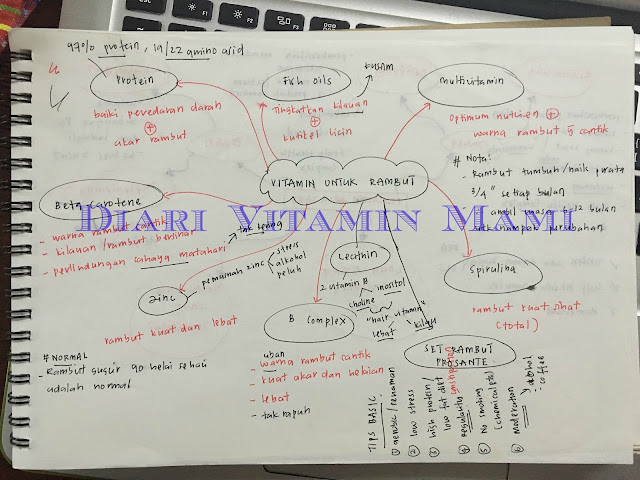 97% protein, 19/22 amino asid
Protein
baiki peredaran darah
+
akar rambut
Fish oils
kusam
Tingkatkan kilauan
+
kutikel licin
Multivitamin
Optimum nutrien +
warna rambut yg cantik
# Nota:
- Rambut tumbuh/naik purata
3/4" setiap bulan
- ambil masa 6-12 bulan
utk nampak perubahan
VITAMIN UNTUK RAMBUT
Beta-carotene
- warna rambut cantik
- kilauan/rambut bersinar
- perlindungan cahaya matahari
tak kering
DIARI VITAMIN MAMI
Zinc
pemusnah zinc
stress
alkohol
peluh
rambut kuat dan lebat
Lecithin
2 vitamin B
choline
inositol
"hair vitamin"
lebat
kilau
Spirulina
rambut kuat sihat
(total)
B complex
uban
- warna rambut cantik
- kuat akar dan helaian
- lebat
- tak rapuh
SET RAMBUT
PROSANTE
# NORMAL
- Rambut gugur 90 helai sehari
adalah normal
TIPS BASIC:
1 aerobic/senaman
2 low stress
3 high protein/
low fat diet
4 regularity
5 No smoking
(chemicals)
6 Moderation
alcohol
coffee